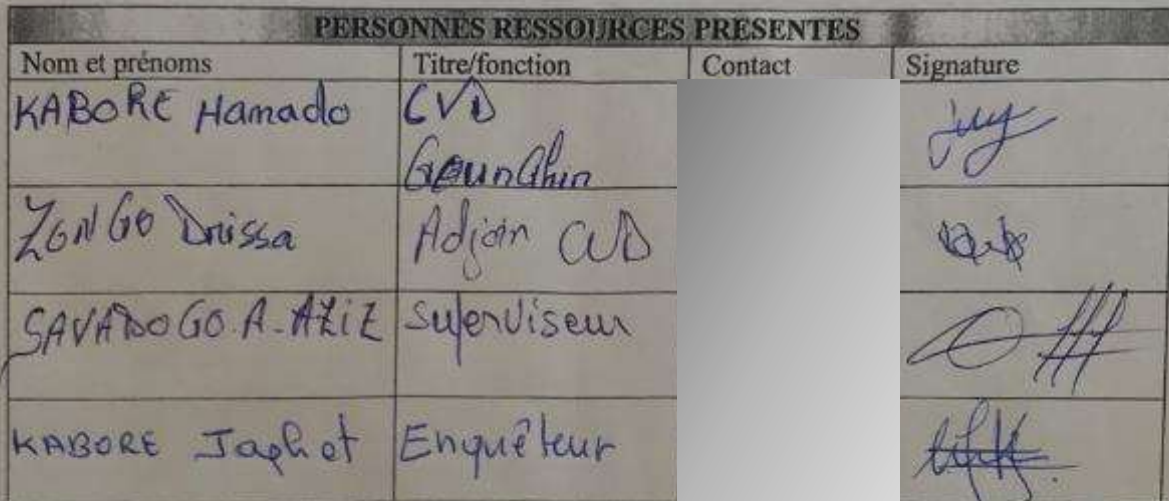 PERSONNES RESSOURCES PRESENTES
Nom et prénoms Titre/fonction Contact Signature
KABORE Hamado CVD
Gounghin
ZONGO Drissa Adjoin CVD
SAVADOGO A. AZIZ Superviseur
KABORE Japhet Enquêteur